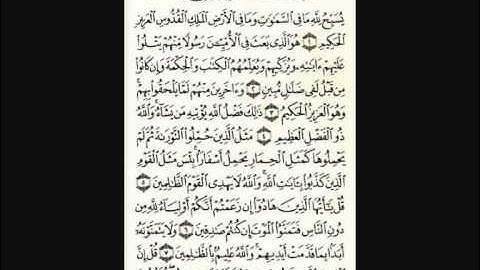 يُسَبِّحُ لِلَّهِ مَا فِي السَّمَٰوَٰتِ وَمَا فِي الْأَرْضِ الْمَلِكِ الْقُدُّوسِ الْعَزِيزِ
الْحَكِيمِ ۝١ هُوَ الَّذِي بَعَثَ فِي الْأُمِّيِّـۧنَ رَسُولًا مِّنْهُمْ يَتْلُوا
عَلَيْهِمْ ءَايَٰتِهِ وَيُزَكِّيهِمْ وَيُعَلِّمُهُمُ الْكِتَٰبَ وَالْحِكْمَةَ وَإِن كَانُوا
مِن قَبْلُ لَفِي ضَلَٰلٍ مُّبِينٍ ۝٢ وَءَاخَرِينَ مِنْهُمْ لَمَّا يَلْحَقُوا بِهِمْ
وَهُوَ الْعَزِيزُ الْحَكِيمُ ۝٣ ذَٰلِكَ فَضْلُ اللَّهِ يُؤْتِيهِ مَن يَشَاءُ وَاللَّهُ
ذُو الْفَضْلِ الْعَظِيمِ ۝٤ مَثَلُ الَّذِينَ حُمِّلُوا التَّوْرَىٰةَ ثُمَّ لَمْ
يَحْمِلُوهَا كَمَثَلِ الْحِمَارِ يَحْمِلُ أَسْفَارًا بِئْسَ مَثَلُ الْقَوْمِ
الَّذِينَ كَذَّبُوا بِـَٔايَٰتِ اللَّهِ وَاللَّهُ لَا يَهْدِي الْقَوْمَ الظَّٰلِمِينَ ۝٥
قُلْ يَٰأَيُّهَا الَّذِينَ هَادُوا إِن زَعَمْتُمْ أَنَّكُمْ أَوْلِيَاءُ لِلَّهِ مِن
دُونِ النَّاسِ فَتَمَنَّوُا الْمَوْتَ إِن كُنتُمْ صَٰدِقِينَ ۝٦ وَلَا يَتَمَنَّوْنَهُ
أَبَدًا بِمَا قَدَّمَتْ أَيْدِيهِمْ وَاللَّهُ عَلِيمٌ بِالظَّٰلِمِينَ ۝٧ قُلْ إِنَّ